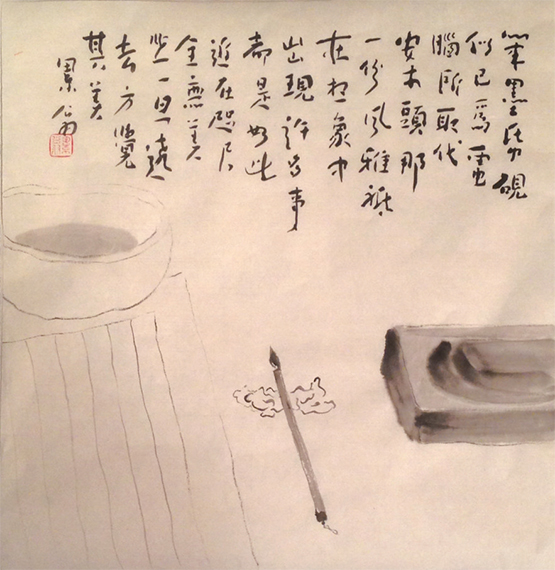 筆墨紙硯
似已為電
腦所取代
案頭那
一份風雅祗
在想象中
出現許多事
都是如此
近在咫尺
全無美
一旦遠
去方覺
其美
翁